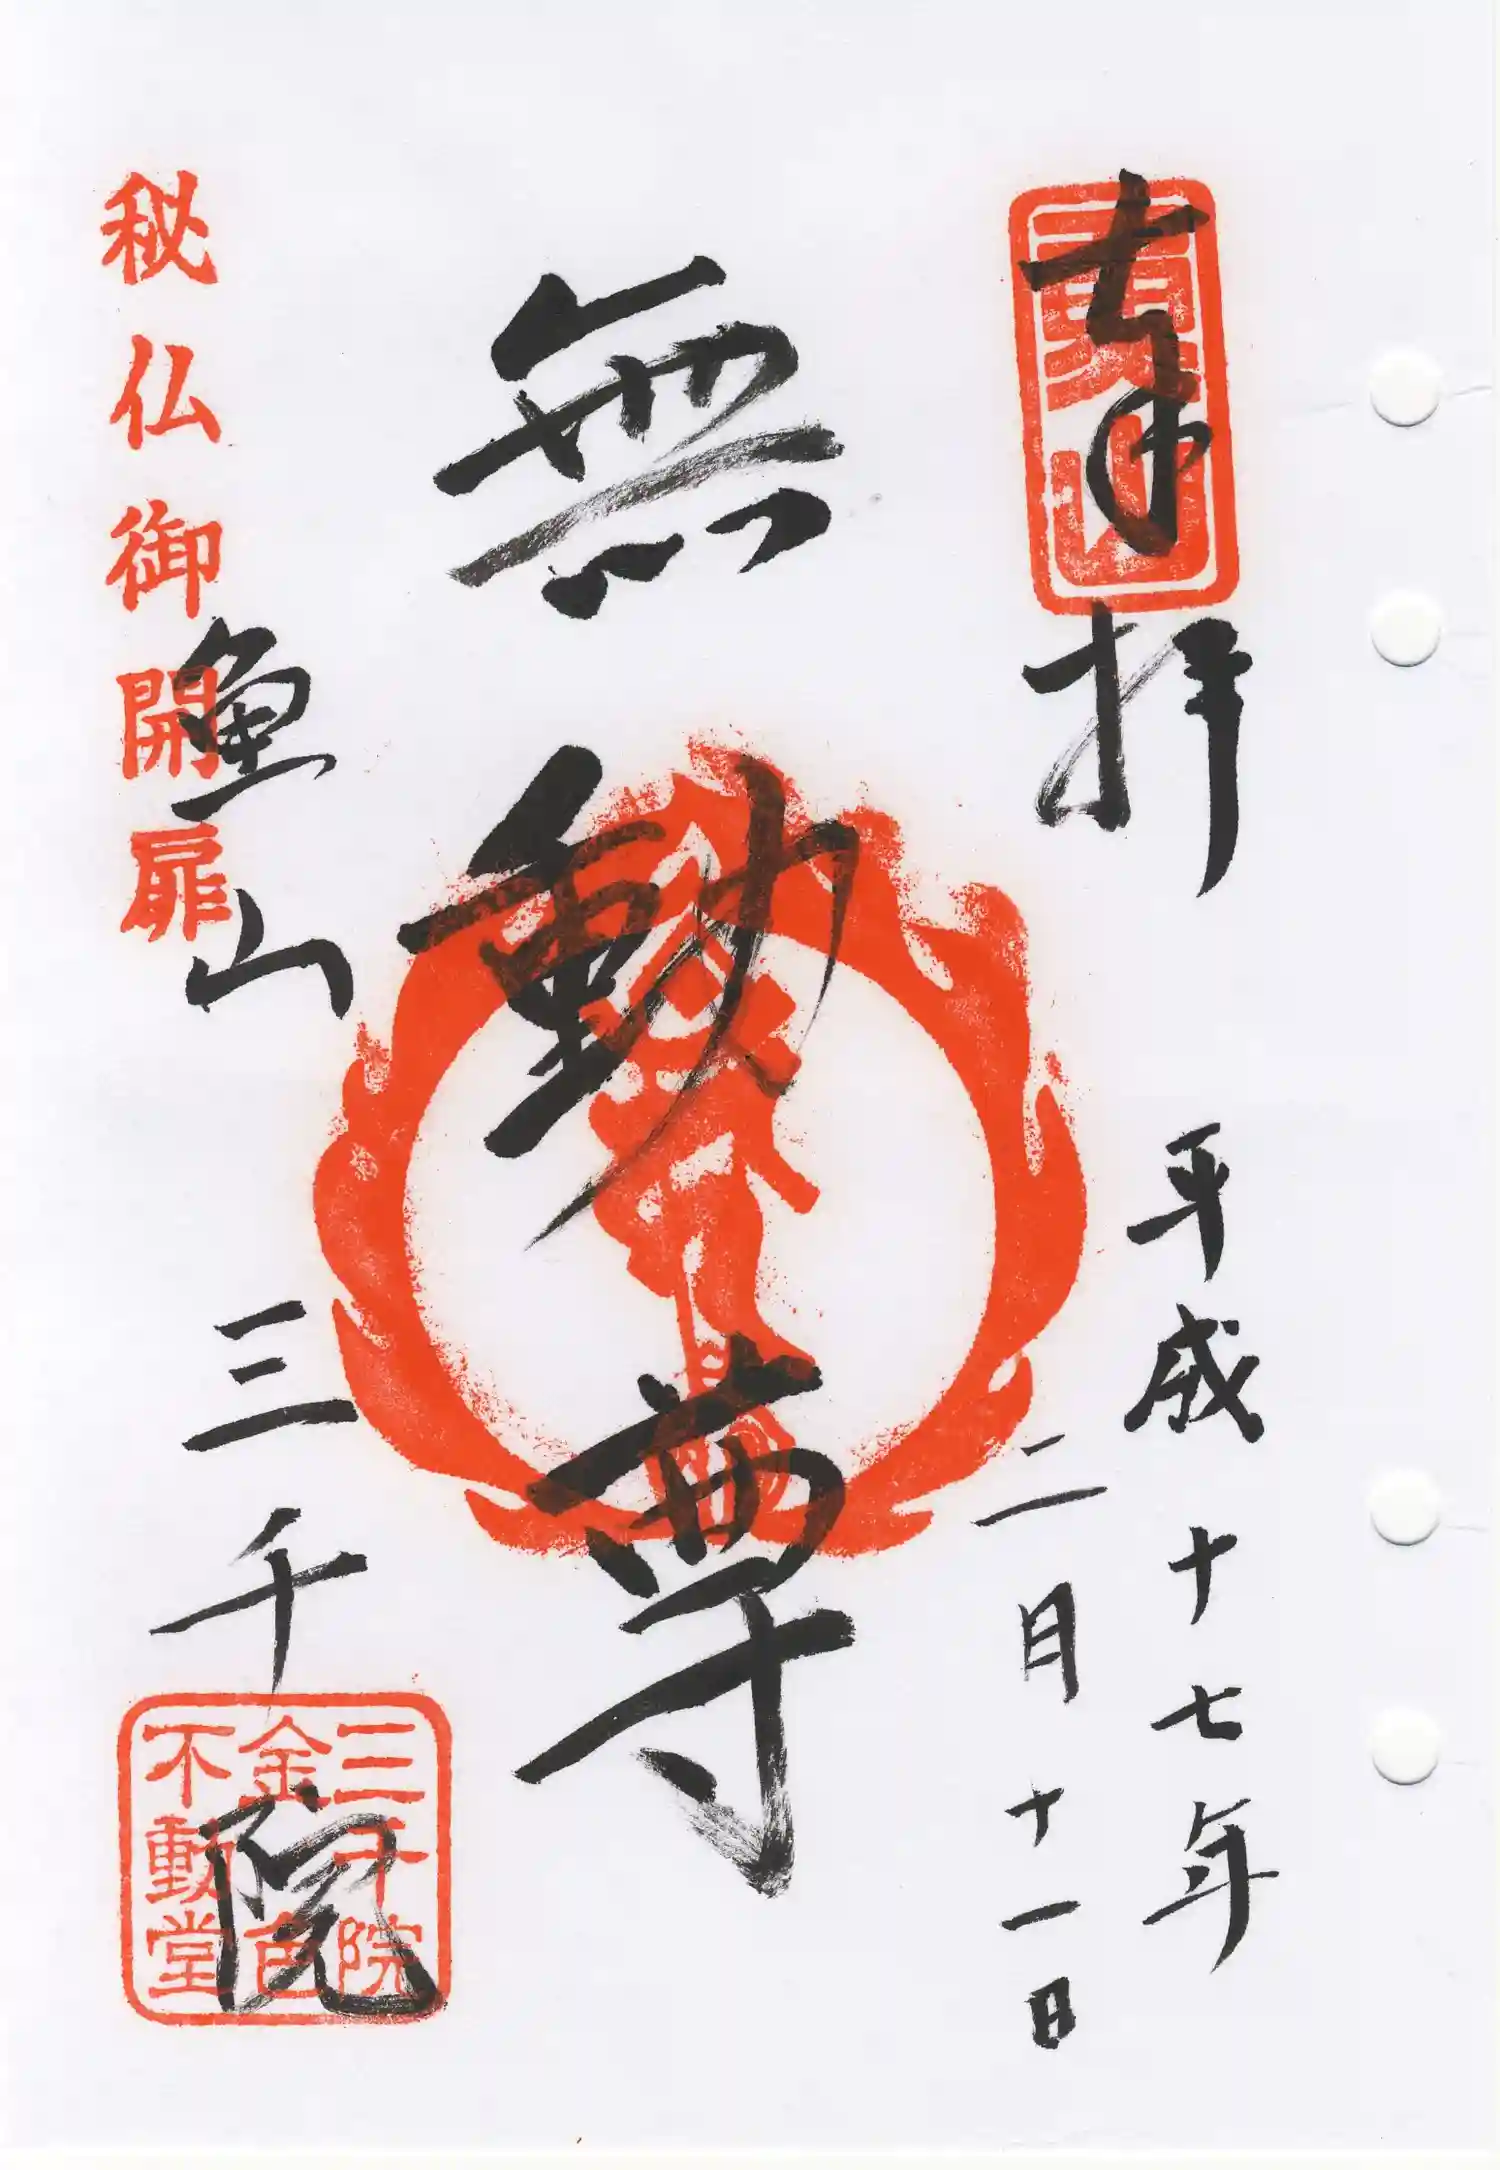 奉拝
平成十七年
二月十一日
無動尊
魚山
三千院
秘仏御開扉
三千院
金色
不動堂